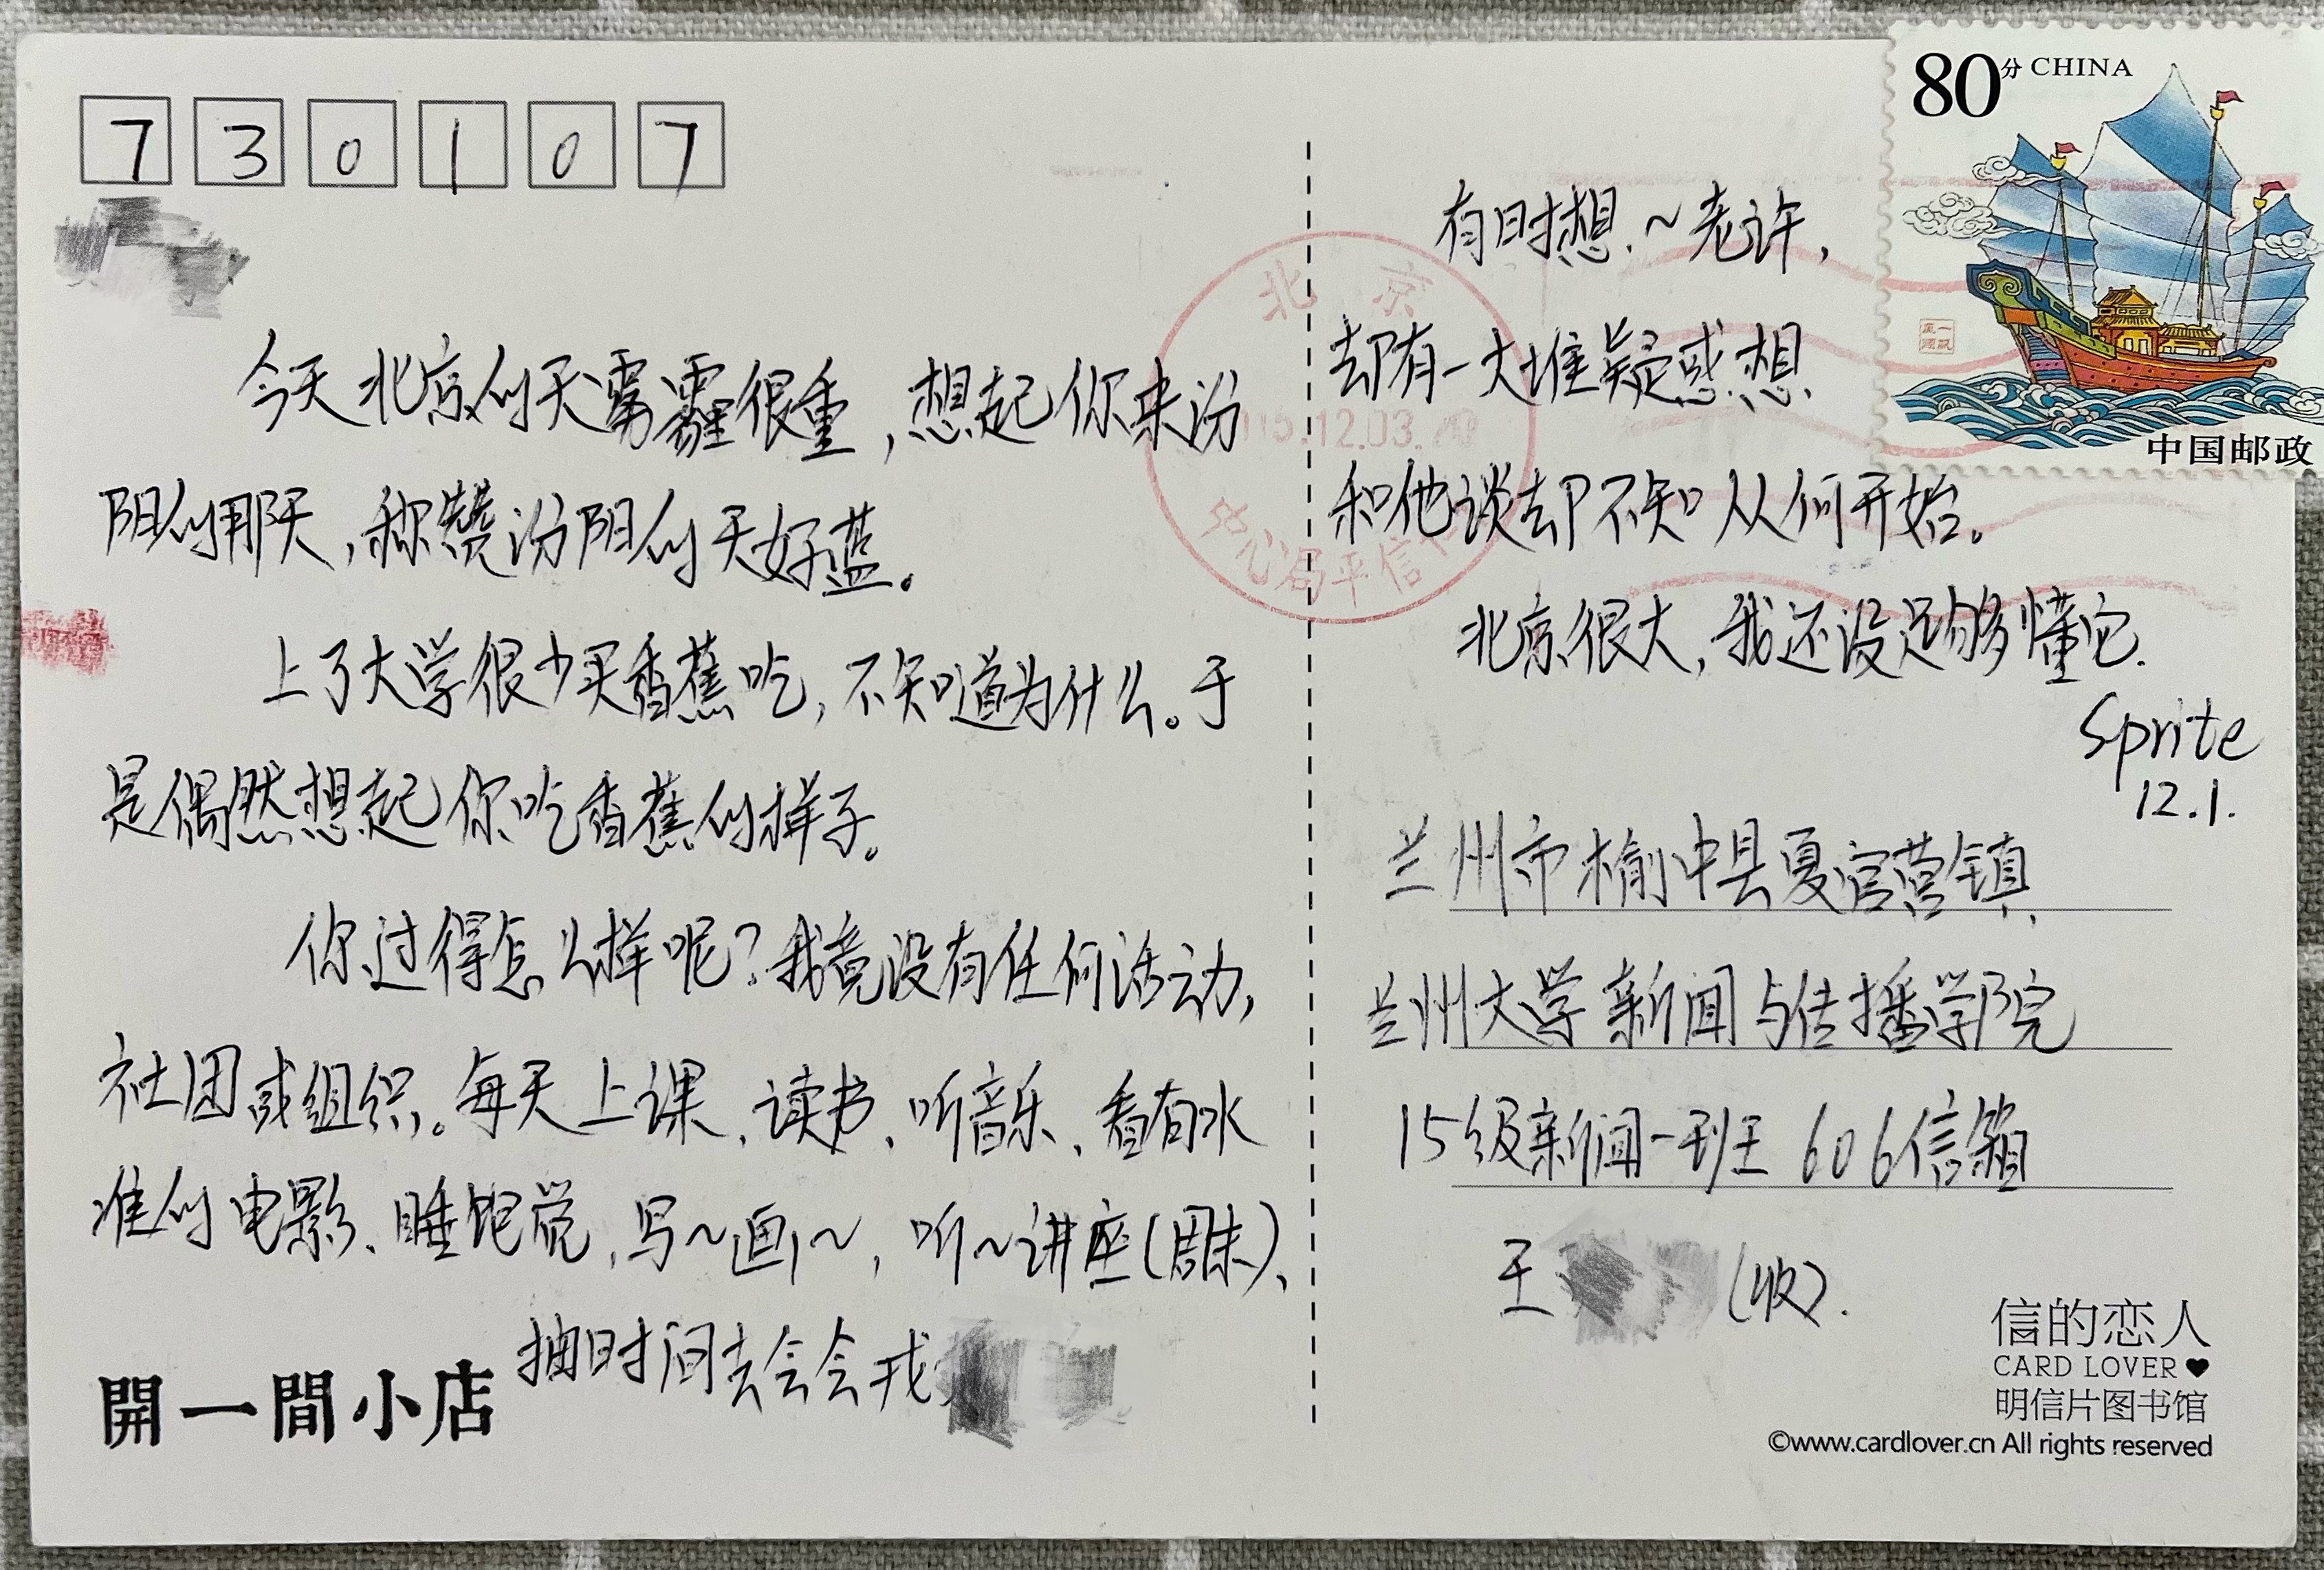 730107
今天北京的天雾霾很重,想起你来汾
阳的那天,称赞汾阳的天好蓝。
上了大学很少买香蕉吃,不知道为什么。于
是偶然想起你吃香蕉的样子。
你过得怎么样呢?我竟没有任何活动,
社团或组织。每天上课、读书、听音乐、看有水
准的电影、睡饱觉,写~画~,听~讲座(周末)、
抽时间去会会我
開一間小店
80分 CHINA
中国邮政
一帆
風順
北京
15.12.03
中心局平信
有时想~老许,
却有一大堆疑惑想
和他谈却不知从何开始。
北京很大,我还没足够懂它.
Sprite
12.1.
兰州市榆中县夏官营镇
兰州大学新闻与传播学院
15级新闻一班 606信箱
王 (收).
信的恋人
CARD LOVER♥
明信片图书馆
©www.cardlover.cn All rights reserved